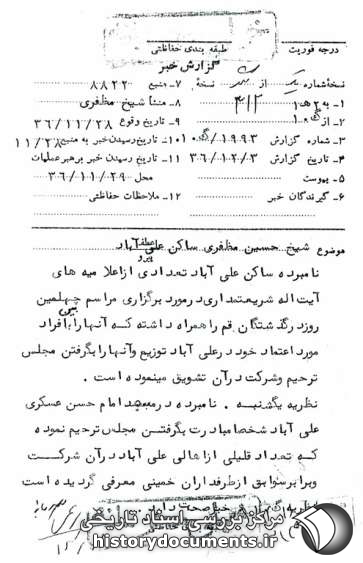 درجه فوریت
طبقه بندی حفاظتی
گزارش خبر
نسخه شماره یک از نسخه ۷- منبع ۸۸۲۲
۱- به ۳۱۲ ۸- منشأ شیخ مظفری
۲- از ۹- تاریخ وقوع ۳۶/۱۱/۲۸
۳- شماره گزارش ۱۰/۱۹۹۳ ۱۰- تاریخ رسیدن خبر به منبع ۱۱/۲۸
۴- تاریخ گزارش ۳۶/۱۲/۳ ۱۱- تاریخ رسیدن خبر برهبر عملیات
۵- پیوست محل ۳۶/۱۱/۲۹
۶- گیرندگان خبر ۱۲- ملاحظات حفاظتی
موضوع شیخ حسین مظفری ساکن علی آباد
نامبرده ساکن علی آباد تعدادی از اعلامیه های
آیت اله شریعتمداری در مورد برگزاری مراسم چهلمین
روز درگذشتگان قم را همراه داشته که آنها را با فراد
مورد اعتماد خود در علی آباد توزیع و آنها را بگرفتن مجلس
ترحیم و شرکت در آن تشویق مینموده است .
نظریه یکشنبه . نامبرده در مسجد امام حسن عسکری
علی آباد شخصا مبادرت بگرفتن مجلس ترحیم نموده
که تعداد قلیلی از اهالی علی آباد در آن شرکت
و برابر سوابق از طرفداران خمینی معرفی گردیده است
مرکز بررسی اسناد تاریخی
historydocuments.ir